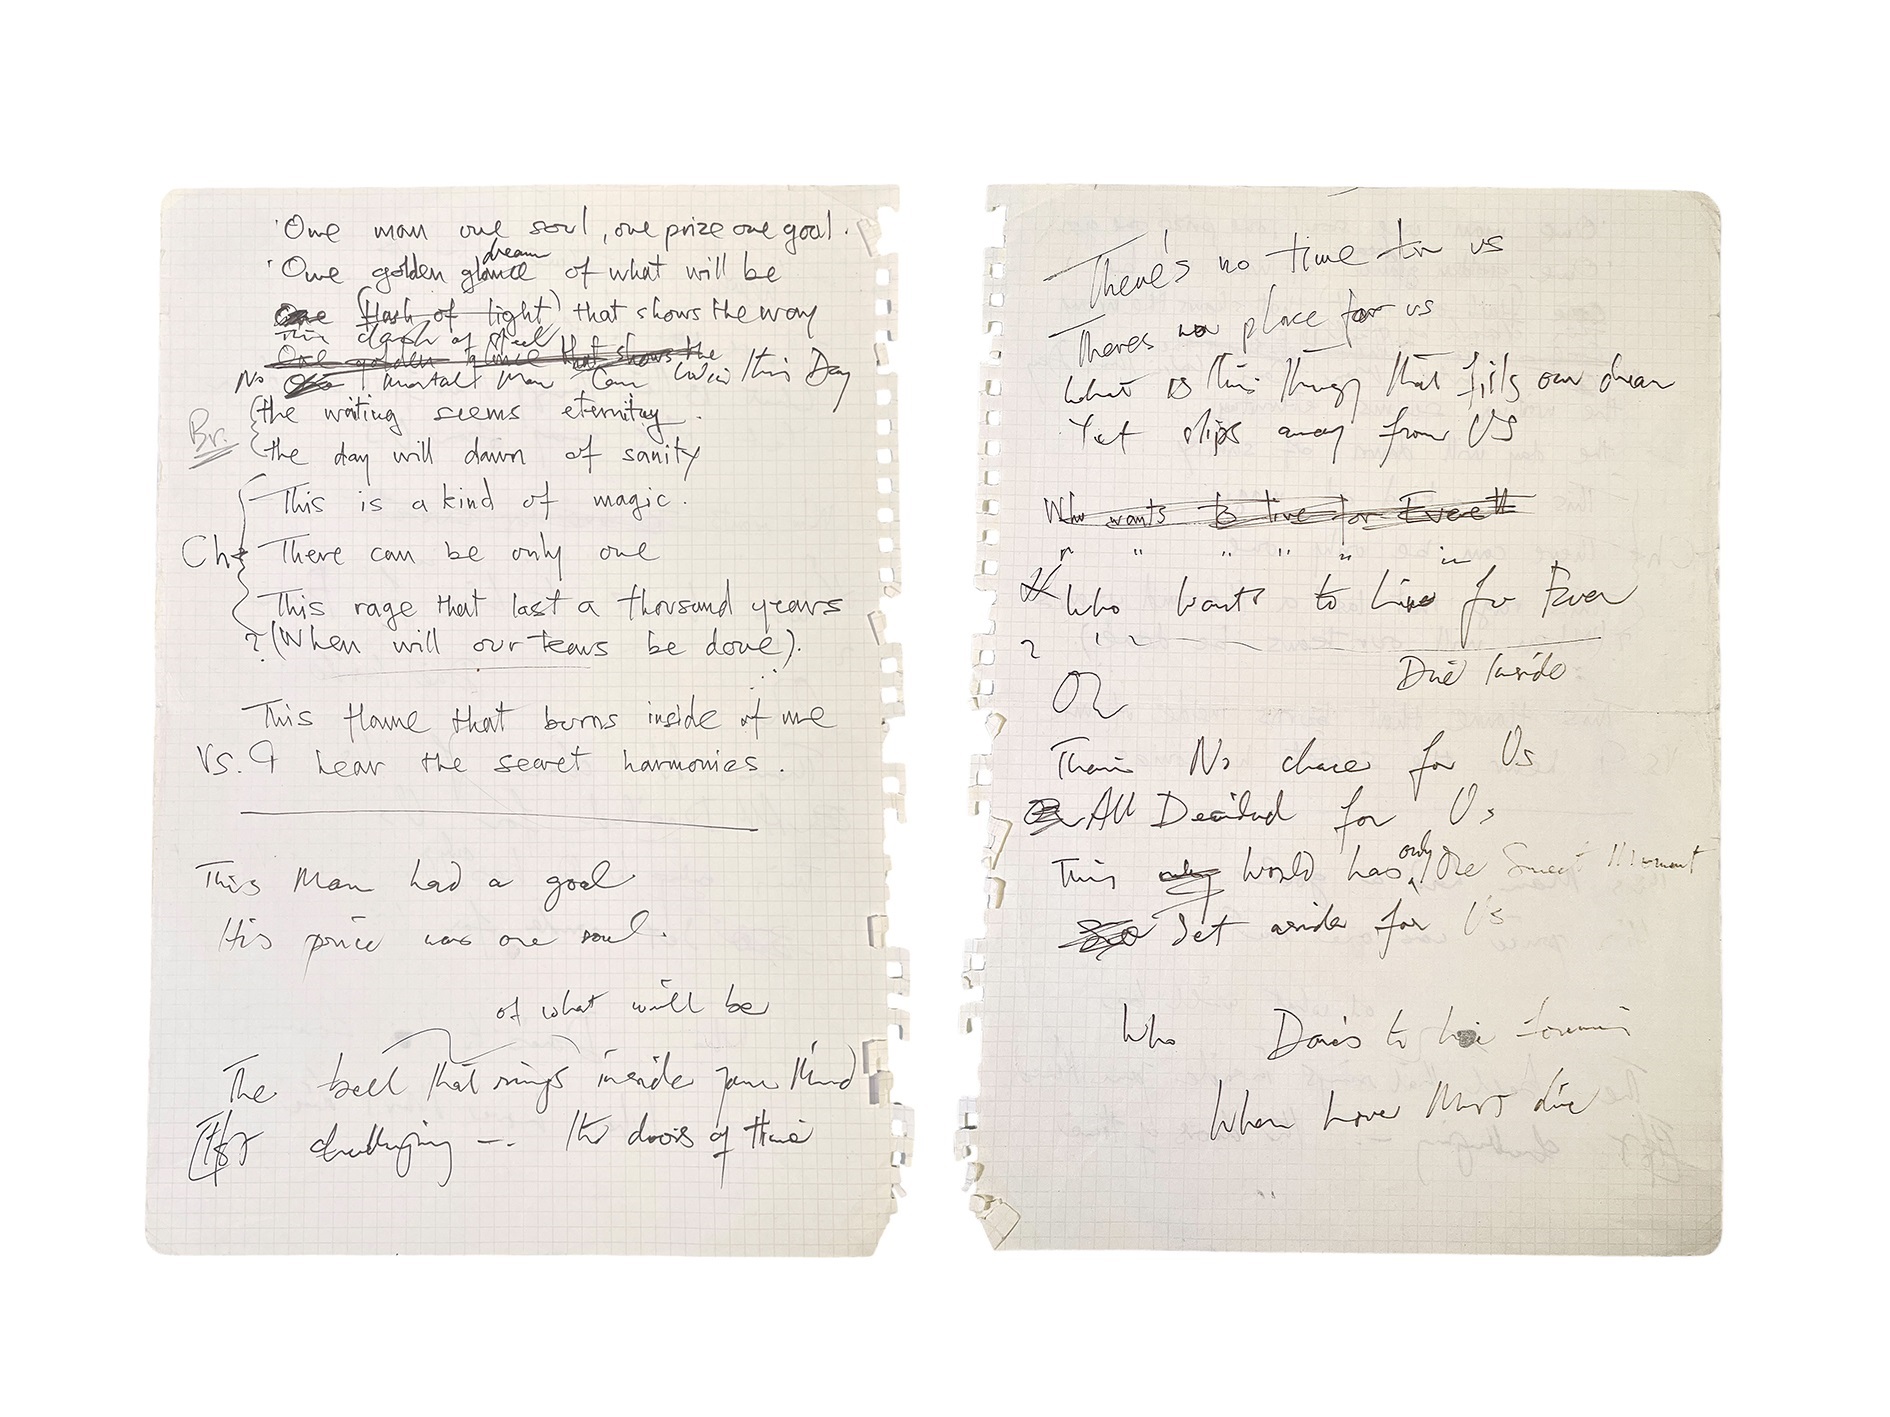 One man one soul, one prize one goal.
dream
One golden glance of what will be
One (flash of light) that shows the way
This clash of steel
One golden glance that shows the
No mortal Man Can Win this Day
(the waiting seems eternity.
Br.
(the day will dawn of sanity
This is a kind of magic.
Ch There can be only one
This rage that last a thousand years
?(When will our tears be done).
This flame that burns inside of me
Vs. I hear the secret harmonies.
This Man had a goal
His price was one soul.
of what will be
The bell that rings inside your Mind
challenging -- the doors of time
There's no time for us
Theres no place for us
What is this thing that fills our dream
Yet slips away from US
Who wants to live for Ever
" " " " "
Who wants to Live for Ever
?
Die Inside
Or
Theirs No chace for Us
All Decided for Us
only
This only World has One Sweet Moment
Set aside for Us
Who Dares to live
When Love Must die